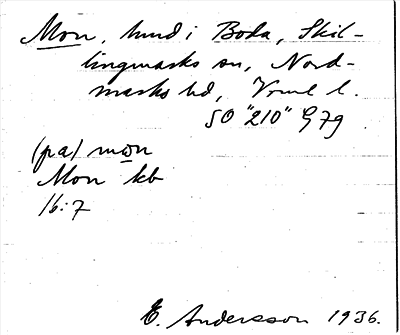 Mon, hmd i Boda, Skil-
lingmarks sn, Nord-
marks hd, Vrml l.
SO "210" G7g
(pa) mon
Mon kb
16:7
E. Andersson 1936.